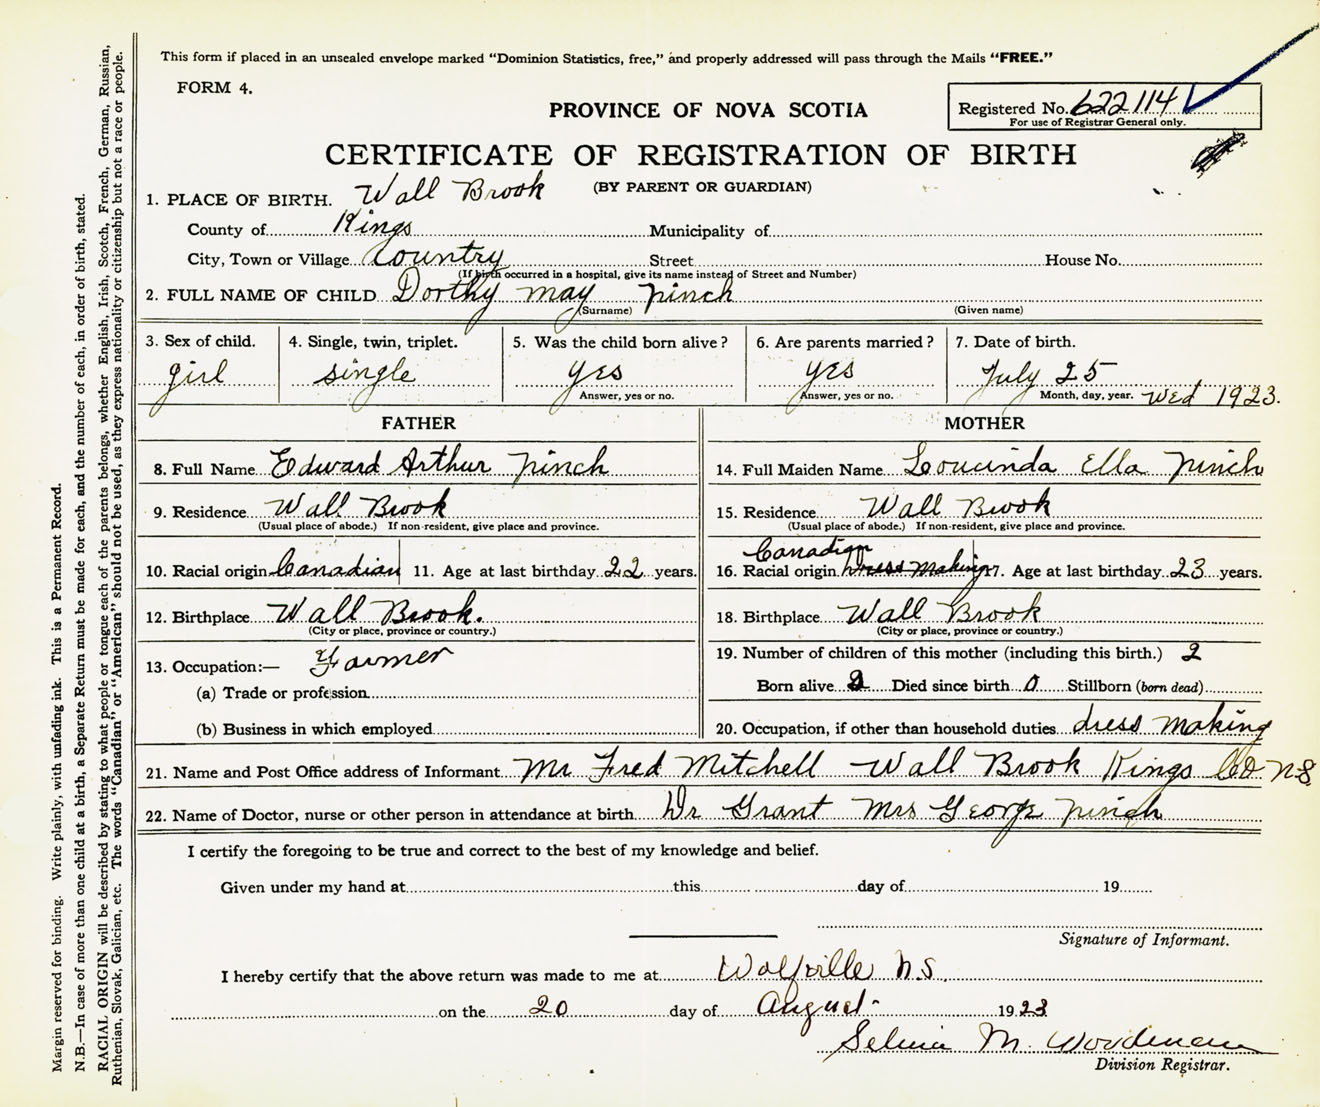 This form if placed in an unsealed envelope marked "Dominion Statistics, free," and properly addressed will pass through the Mails "FREE."
FORM 4.
PROVINCE OF NOVA SCOTIA
Registered No. 622114
For use of Registrar General only.
CERTIFICATE OF REGISTRATION OF BIRTH
(BY PARENT OR GUARDIAN)
1. PLACE OF BIRTH. Wall Brook
County of Kings Municipality of
City, Town or Village Country Street House No.
(If birth occurred in a hospital, give its name instead of Street and Number)
2. FULL NAME OF CHILD Dorthy may Pinch
(Surname) (Given name)
3. Sex of child. 4. Single, twin, triplet. 5. Was the child born alive? 6. Are parents married? 7. Date of birth.
girl single yes yes July 25
Answer, yes or no. Answer, yes or no. Month, day, year. Wed 1923.
FATHER MOTHER
8. Full Name Edward Arthur Pinch 14. Full Maiden Name Loucinda Ella Pinch
9. Residence Wall Brook 15. Residence Wall Brook
(Usual place of abode.) If non-resident, give place and province. (Usual place of abode.) If non-resident, give place and province.
Canadian
10. Racial origin Canadian 11. Age at last birthday 22 years. 16. Racial origin Dress Making 17. Age at last birthday 23 years.
12. Birthplace Wall Brook. 18. Birthplace Wall Brook
(City or place, province or country.) (City or place, province or country.)
13. Occupation:— Farmer 19. Number of children of this mother (including this birth.) 2
(a) Trade or profession Born alive 2 Died since birth 0 Stillborn (born dead)
(b) Business in which employed 20. Occupation, if other than household duties dress making
21. Name and Post Office address of Informant Mr Fred Mitchell Wall Brook Kings Co. N.S.
22. Name of Doctor, nurse or other person in attendance at birth Dr Grant Mrs George Pinch
I certify the foregoing to be true and correct to the best of my knowledge and belief.
Given under my hand at this day of 19
Signature of Informant.
I hereby certify that the above return was made to me at Wolfville N.S.
on the 20 day of August 1923
Selina M. Woodman
Division Registrar.
Margin reserved for binding. Write plainly, with unfading ink. This is a Permanent Record.
N.B.—In case of more than one child at a birth, a Separate Return must be made for each, and the number of each, in order of birth, stated.
RACIAL ORIGIN will be described by stating to what people or tongue each of the parents belongs, whether English, Irish, Scotch, French, German, Russian,
Ruthenian, Slovak, Galician, etc. The words "Canadian" or "American" should not be used, as they express nationality or citizenship but not a race or people.